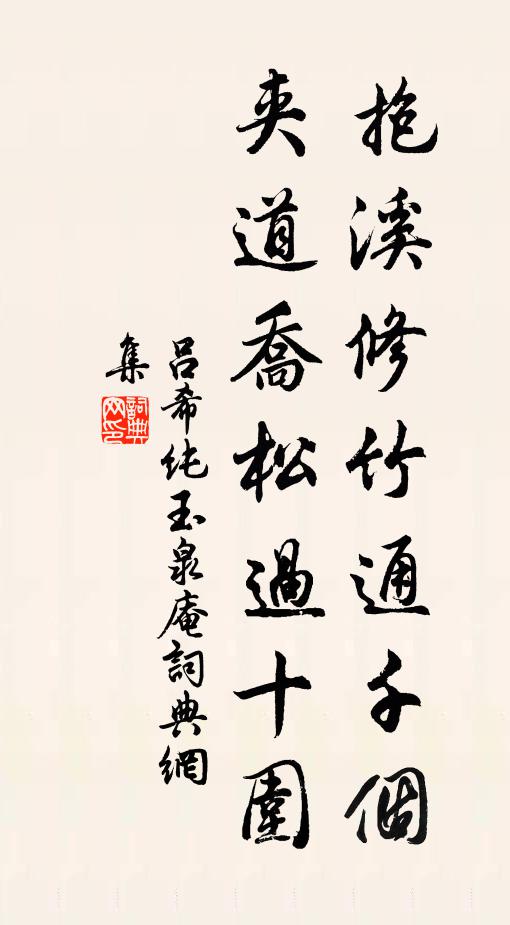 抱溪修竹通千個
夾道喬松過十圍
呂希純玉泉庵詞典網
集
詞典網印